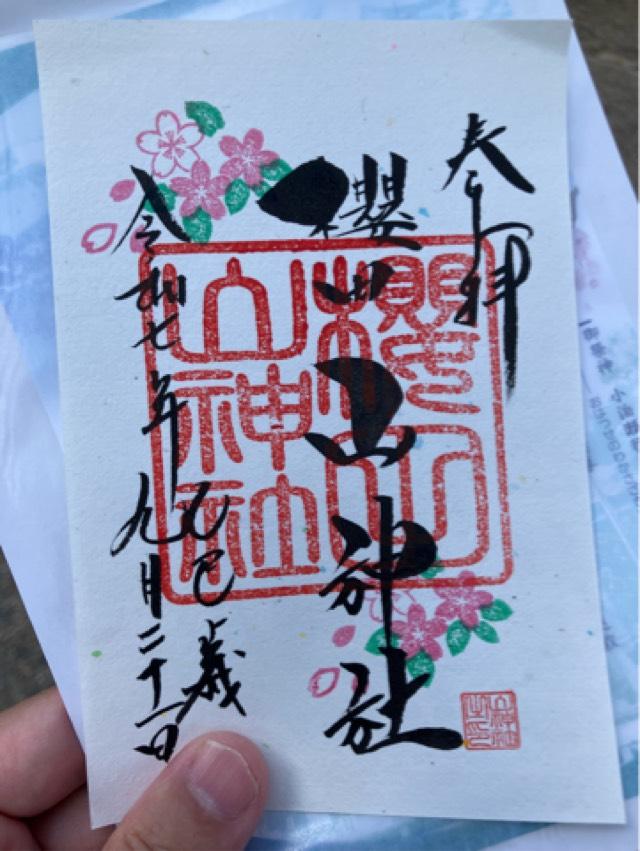 奉拝
櫻田山神社
櫻田
山神社
令和七年
乙巳歳
九月二十一日